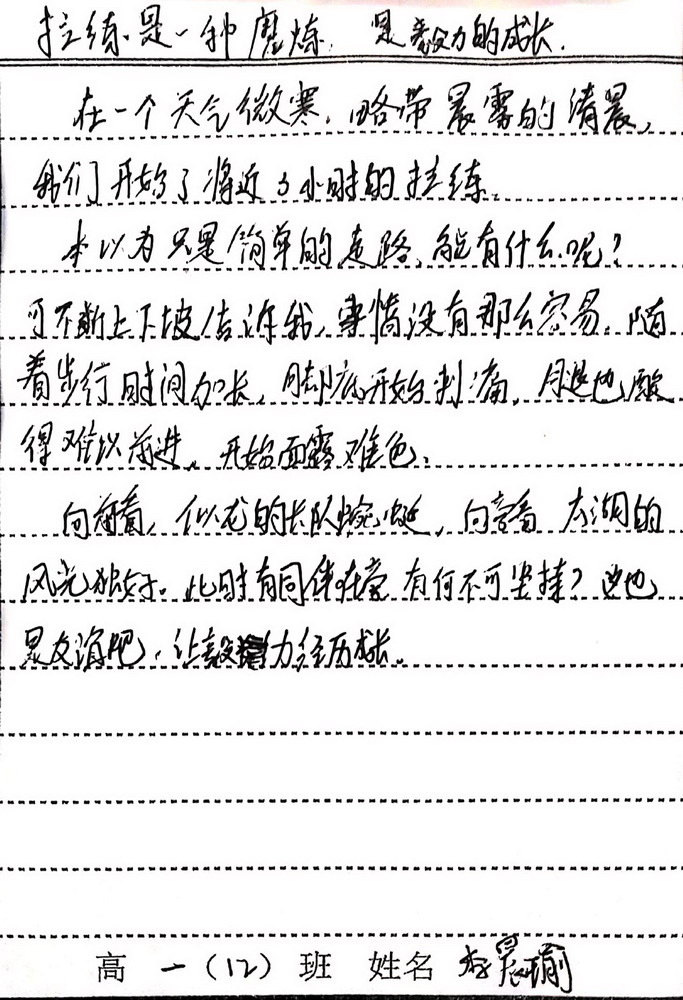 拉练是一种磨炼,是毅力的成长.
在一个天气微寒,略带晨雾的清晨,
我们开始了将近3小时的拉练。
本以为只是简单的走路,能有什么呢?
可不断上下坡告诉我,事情没有那么容易。随
着步行时间加长,脚底开始刺痛,腿也酸
得难以前进,开始面露难色。
向前看,似龙的长队蜿蜒,向旁看 太湖的
风光独好。此时有同伴在旁 有何不可坚持?这也
是友谊吧,让毅力经历成长。
高一(12)班 姓名 李晨瑜